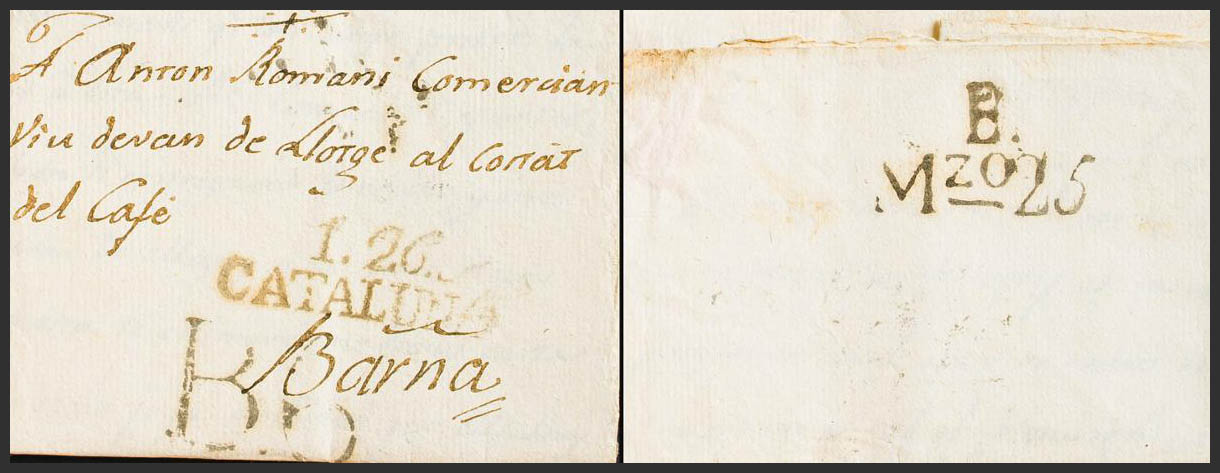 A Anton Romani Comercian
Viu devan de Llotge al Corrat
del Café
1. 26.
CATALUÑA
Barna
B.o
B.
Mzo 25